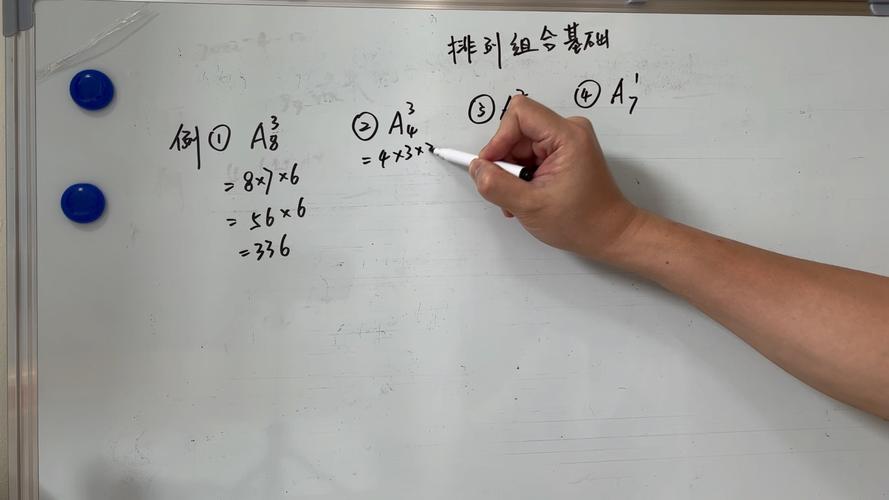 排列组合基础
例 ① A₈³
= 8×7×6
= 56×6
= 336
② A₄³
= 4×3×2
③ A
④ A₇¹